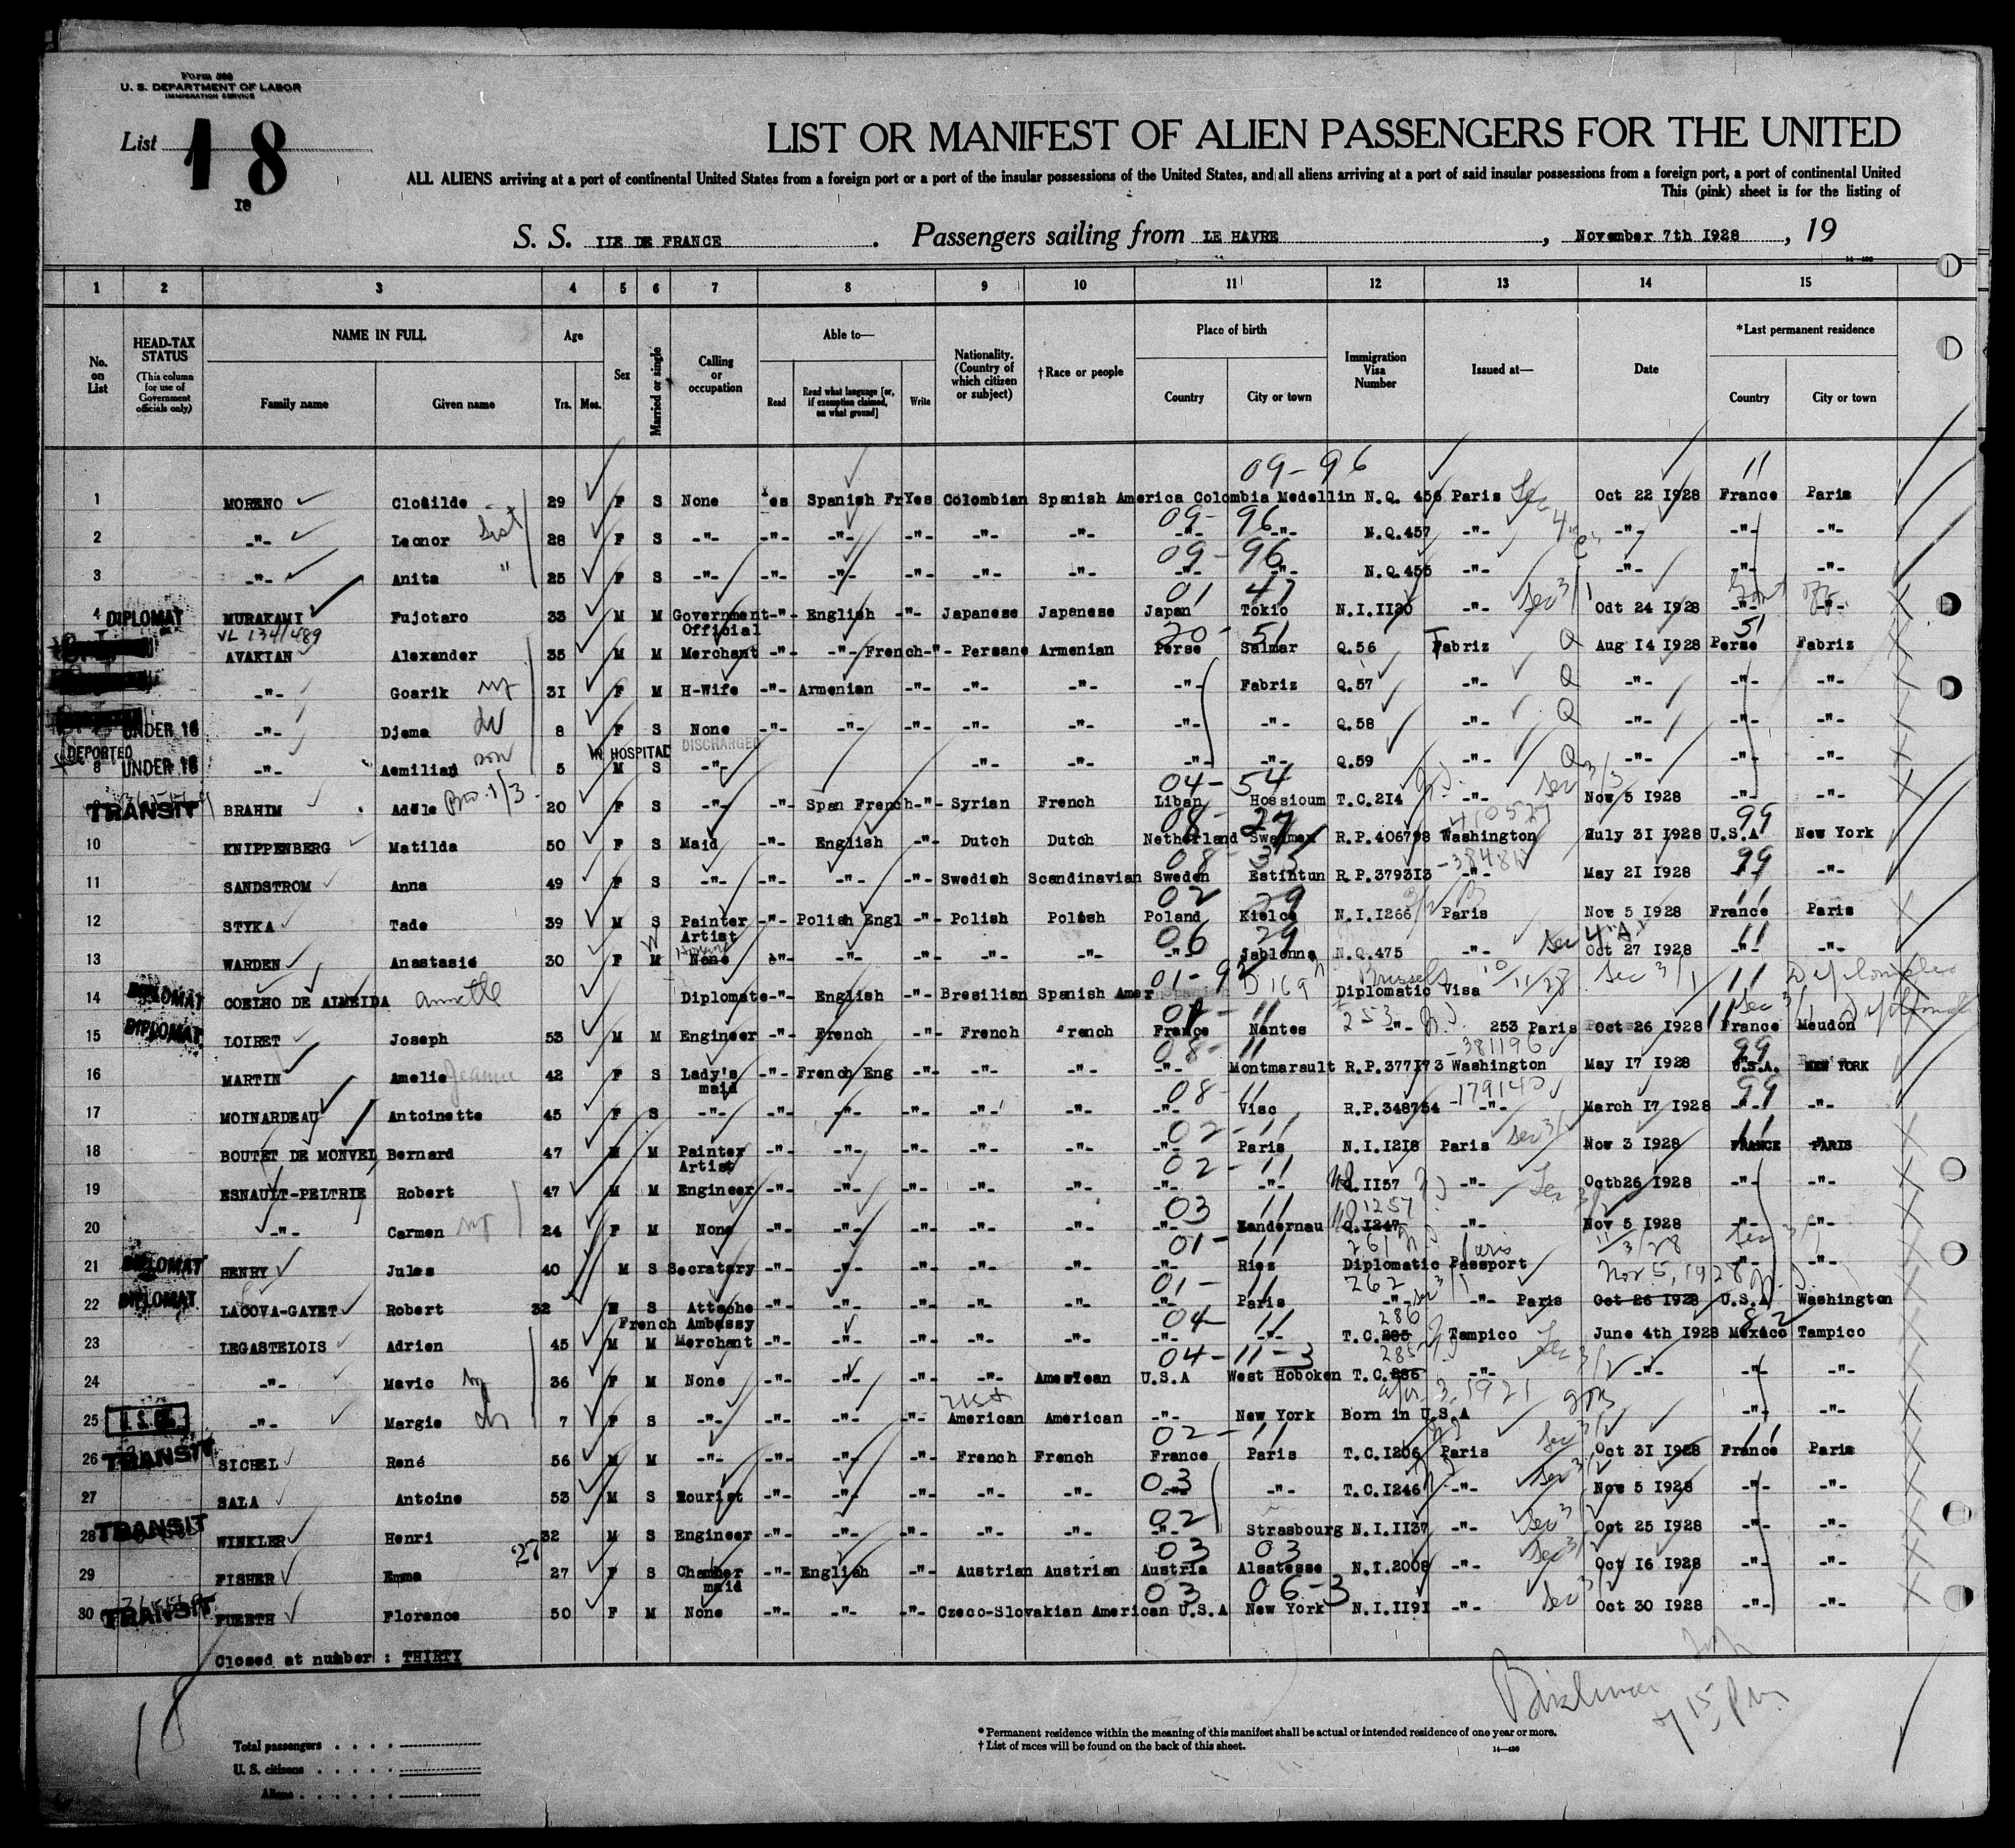 Form 500
U. S. DEPARTMENT OF LABOR
IMMIGRATION SERVICE
List 18
I8
LIST OR MANIFEST OF ALIEN PASSENGERS FOR THE UNITED
ALL ALIENS arriving at a port of continental United States from a foreign port or a port of the insular possessions of the United States, and all aliens arriving at a port of said insular possessions from a foreign port, a port of continental United
This (pink) sheet is for the listing of
S. S. ILE DE FRANCE. Passengers sailing from LE HAVRE, November 7th I928, 19
1 2 3 4 5 6 7 8 9 10 11 12 13 14 15
No. on List HEAD-TAX STATUS (This column for use of Government officials only) NAME IN FULL Family name Given name Age Yrs. Mos. Sex Married or single Calling or occupation Able to— Read Read what language [or, if exemption claimed, on what ground] Write Nationality. (Country of which citizen or subject) †Race or people Place of birth Country City or town Immigration Visa Number Issued at— Date *Last permanent residence Country City or town
09-96 11
1 MORENO Clotilde 29 F S None Yes Spanish Fr Yes Colombian Spanish America Colombia Medellin N.Q. 456 Paris Oct 22 I928 France Paris
09-96
2 -"- Leonor Sist 28 F S -"- -"- -"- -"- -"- -"- -"- -"- N.Q.457 -"- -"- -"- -"-
09-96
3 -"- Anita " 25 F S -"- -"- -"- -"- -"- -"- -"- -"- N.Q.455 -"- -"- -"- -"-
01 47 Sec 3/1
4 DIPLOMAT MURAKAMI Fujotaro 33 M M Government Official -"- English -"- Japanese Japanese Japan Tokio N.I.II20 -"- Odt 24 I928 -"- -"-
VL 134/489 20-51 51
AVAKIAN Alexander 35 M M Merchant -"- -"- French -"- Persane Armenian Perse Salmar Q.56 Tabriz Q Aug I4 I928 Perse Fabriz
-"- Goarik 3I F M H-Wife -"- Armenian -"- -"- -"- -"- Fabriz Q.57 -"- Q -"- -"- -"-
UNDER 16 -"- Djema 8 F S None -"- -"- -"- -"- -"- -"- -"- Q.58 -"- Q -"- -"- -"-
DEPORTED IN HOSPITAL DISCHARGED
8 UNDER 16 -"- Aemilian son 5 M S -"- -"- -"- -"- -"- Q.59 -"- Q -"- -"- -"-
04-54 Sec 3/3
TRANSIT BRAHIM Adèle 20 F S -"- -"- Span French -"- Syrian French Liban Hossioum T.C.2I4 -"- Nov 5 I928 -"- -"-
08-27 99
10 KNIPPENBERG Matilda 50 F S Maid -"- English -"- Dutch Dutch Netherland Swalmen R.P.406798 Washington July 3I I928 U.S.A New York
08 99
11 SANDSTROM Anna 49 F S -"- -"- -"- -"- Swedish Scandinavian Sweden Estintun R.P.3793I3 -"- May 2I I928 -"- -"-
02 29 11
12 STYKA Tade 39 M S Painter Artist -"- Polish Engl -"- Polish Polish Poland Kielce N.I.I266 Paris Nov 5 I928 France Paris
06 29 11
13 WARDEN Anastasie 30 F M None -"- -"- -"- -"- -"- -"- Jablonna N.Q.475 -"- Oct 27 I928 -"- -"-
Brussels 10/11/28 Sec 3/1 11
14 DIPLOMAT COELHO DE ALMEIDA Annette Diplomate -"- English -"- Bresilian Spanish Amer Diplomatic Visa
01 11 253 Sec 3/1
15 DIPLOMAT LOIRET Joseph 53 M M Engineer -"- French -"- French French France Nantes -"- 253 Paris Oct 26 I928 France Meudon
08-11 381196 99
16 MARTIN Amelie Jeanne 42 F S Lady's maid -"- French Eng -"- -"- -"- -"- Montmarault R.P.377I73 Washington May I7 I928 U.S.A. NEW YORK
08-11 99
17 MOINARDEAU Antoinette 45 F S -"- -"- -"- -"- -"- -"- -"- Visc R.P.348754 -"- March I7 I928 -"- -"-
02-11 Sec 3/1 11
18 BOUTET DE MONVEL Bernard 47 M M Painter Artist -"- -"- -"- -"- -"- -"- Paris N.I.I2I8 Paris Nov 3 I928 FRANCE PARIS
02-11
19 ESNAULT-PELTRIE Robert 47 M M Engineer -"- -"- -"- -"- -"- -"- -"- II57 -"- Octb26 I928 -"- -"-
03 11 1257
20 -"- Carmen 24 F M None -"- -"- -"- -"- -"- -"- Mandernau I247 -"- Nov 5 I928 -"- -"-
01-11 261 Paris 11/3/28 Sec 3/1
21 DIPLOMAT HENRY Jules 40 M S Secretary -"- -"- -"- -"- -"- -"- Ries Diplomatic Passport -"- -"-
01-11 262 Sec 3/1 Nov 5, 1928
22 DIPLOMAT LACOVA-GAYET Robert 32 M S Attache French Ambassy -"- -"- -"- -"- -"- -"- Paris -"- -"- Paris Oct 26 I928 U.S.A Washington
04-11 286 82
23 LEGASTELOIS Adrien 45 M M Merchant -"- -"- -"- -"- -"- -"- -"- T.C.285 Tampico June 4th I928 Mexico Tampico
04-11-3 285
24 -"- Mavic 36 F M None -"- -"- -"- -"- American U.S.A West Hoboken T.C.286 -"- -"- -"- -"-
25 U.S. -"- Margie 7 F S -"- -"- -"- -"- American American -"- New York Born in U.S.A -"- -"-
02-11 11
26 TRANSIT SICHEL René 56 M M -"- -"- -"- -"- French French France Paris T.C.I206 Paris Oct 3I I928 France Paris
03
27 SALA Antoine 53 M S Tourist -"- -"- -"- -"- -"- -"- -"- T.C.I246 -"- Nov 5 I928 -"- -"-
02 Sec 3/2
28 TRANSIT WINKLER Henri 32 M S Engineer -"- -"- -"- -"- -"- -"- Strasbourg N.I.II37 -"- Oct 25 I928 -"- -"-
27 03 03
29 FISHER Emma 27 F S Chamber maid -"- English -"- Austrian Austrian Austria Alsatesse N.I.2008 -"- Oct I6 I928 -"- -"-
03 06-3 Sec 3/2
30 TRANSIT FUERTH Florence 50 F M None -"- -"- -"- Czeco-Slovakian American U.S.A New York N.I.II9I -"- Oct 30 I928 -"- -"-
Closed at number : THIRTY
18
7 15 pm
Total passengers
U. S. citizens
Aliens
* Permanent residence within the meaning of this manifest shall be actual or intended residence of one year or more.
† List of races will be found on the back of this sheet.